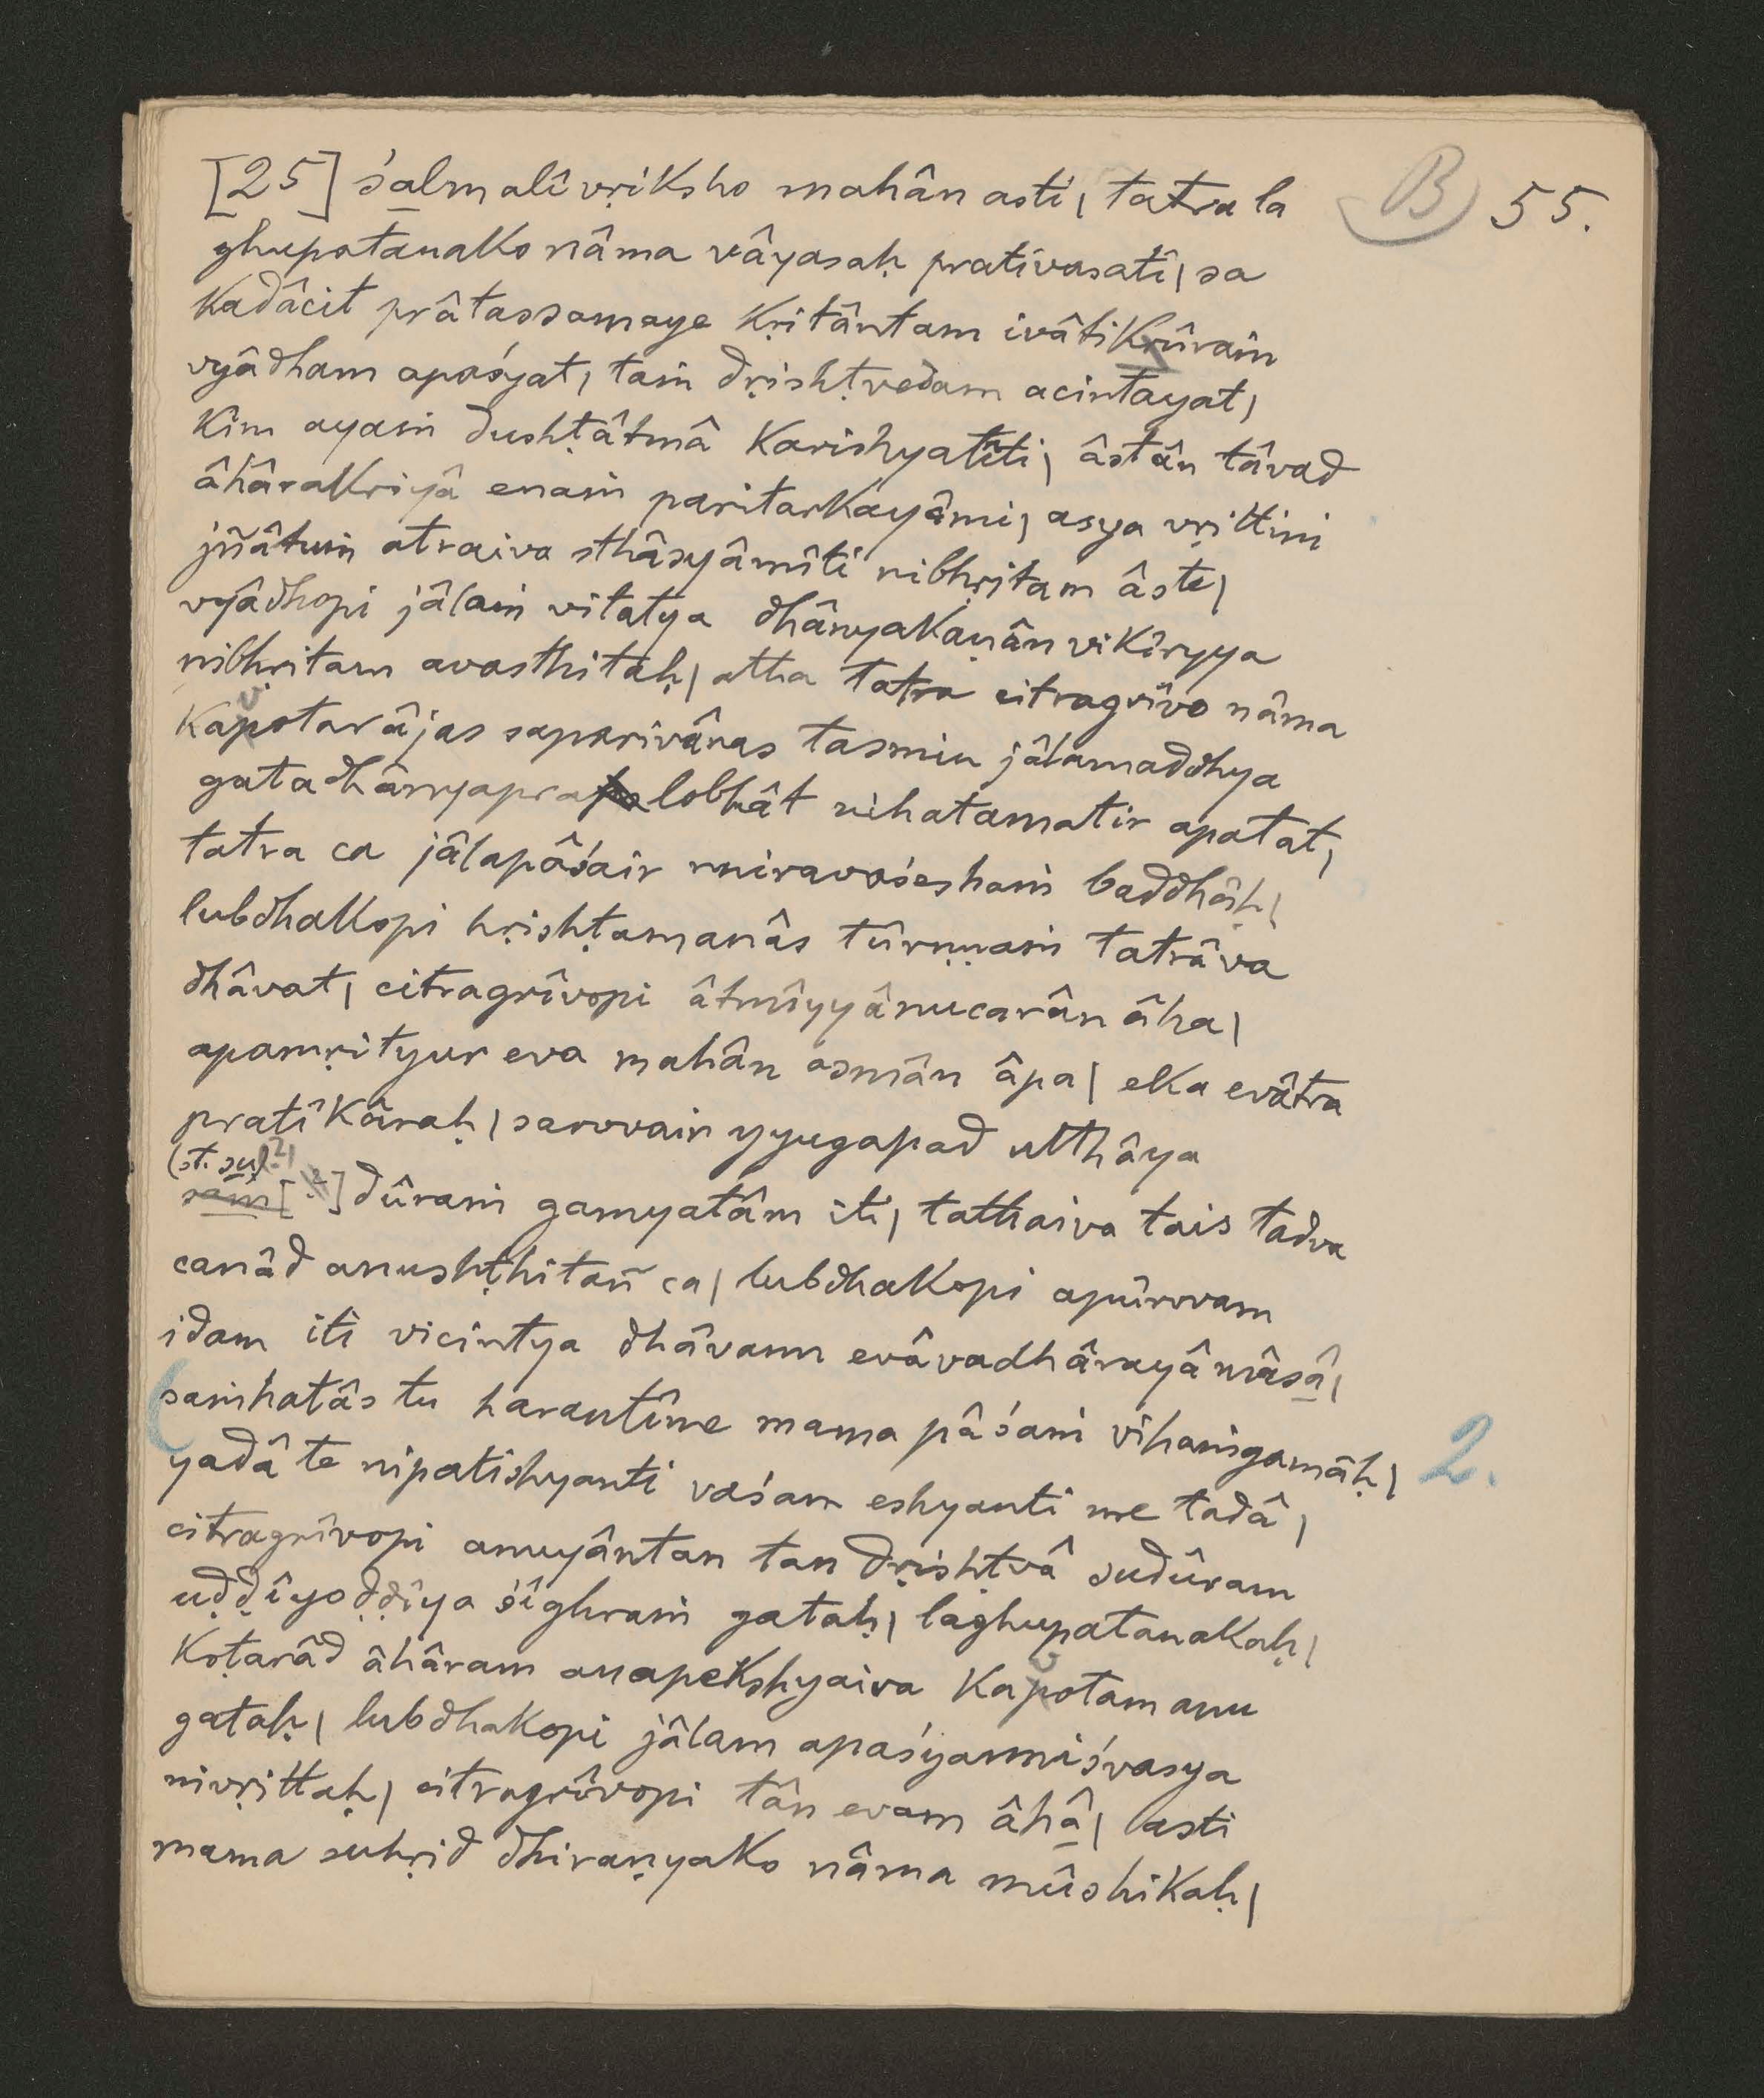 [25] śalmalîvṛiksho mahân asti| tatra la
ghupatanako nâma vâyasaḥ prativasati| sa
kadâcit prâtassamaye kṛitântam ivâtikrûraṁ
vyâdham apaśyat, taṁ dṛishṭvedam acintayat|
kim ayaṁ dushṭâtmâ karishyatîti| âstân tâvad
âhârakriyâ enaṁ paritarkayâmi| asya vṛittiṁ
jñâtuṁ atraiva sthâsyâmîti nibhṛitam âste|
vyâdhopi jâlaṁ vitatya dhânyakaṇân vikîryya
nibhṛitam avasthitaḥ| atha tatra citragrîvo nâma
kapotarâjas saparivâras tasmin jâlamaddhya
gatadhânyapralobhât vihatamatir apatat,
tatra ca jâlapâśair nniravaśeshaṁ baddhâḥ|
lubdhakopi hṛishṭamanâs tûrṇṇaṁ tatrâva
dhâvat| citragrîvopi âtmîyyânucarân âha|
apamṛityur eva mahân asmân âpa| eka evâtra
pratîkâraḥ| sarvvair yyugapad utthâya
(st. su)?|
saṁ[?] dûraṁ gamyatâm iti| tathaiva tais tadva
canâd anushṭhitañ ca| lubdhakopi apûrvvam
idam iti vicintya dhâvann evâvadhârayâmâsâ|
saṁhatâs tu harantîme mama pâśaṁ vihaṁgamâḥ|
2.
yadâ te nipatishyanti vaśam eshyanti me tadâ|
citragrîvopi anuyântan tan dṛishṭvâ sudûram
uḍḍîyoḍḍîya śîghraṁ gataḥ| laghupatanakaḥ|
koṭarâd âhâram anapekshyaiva kapotam anu
gataḥ| lubdhakopi jâlam apaśyanniśvasya
nivṛittaḥ| citragrîvopi tân evam âhâ| asti
mama suhṛid dhiraṇyako nâma mûshikaḥ|
B) 55.